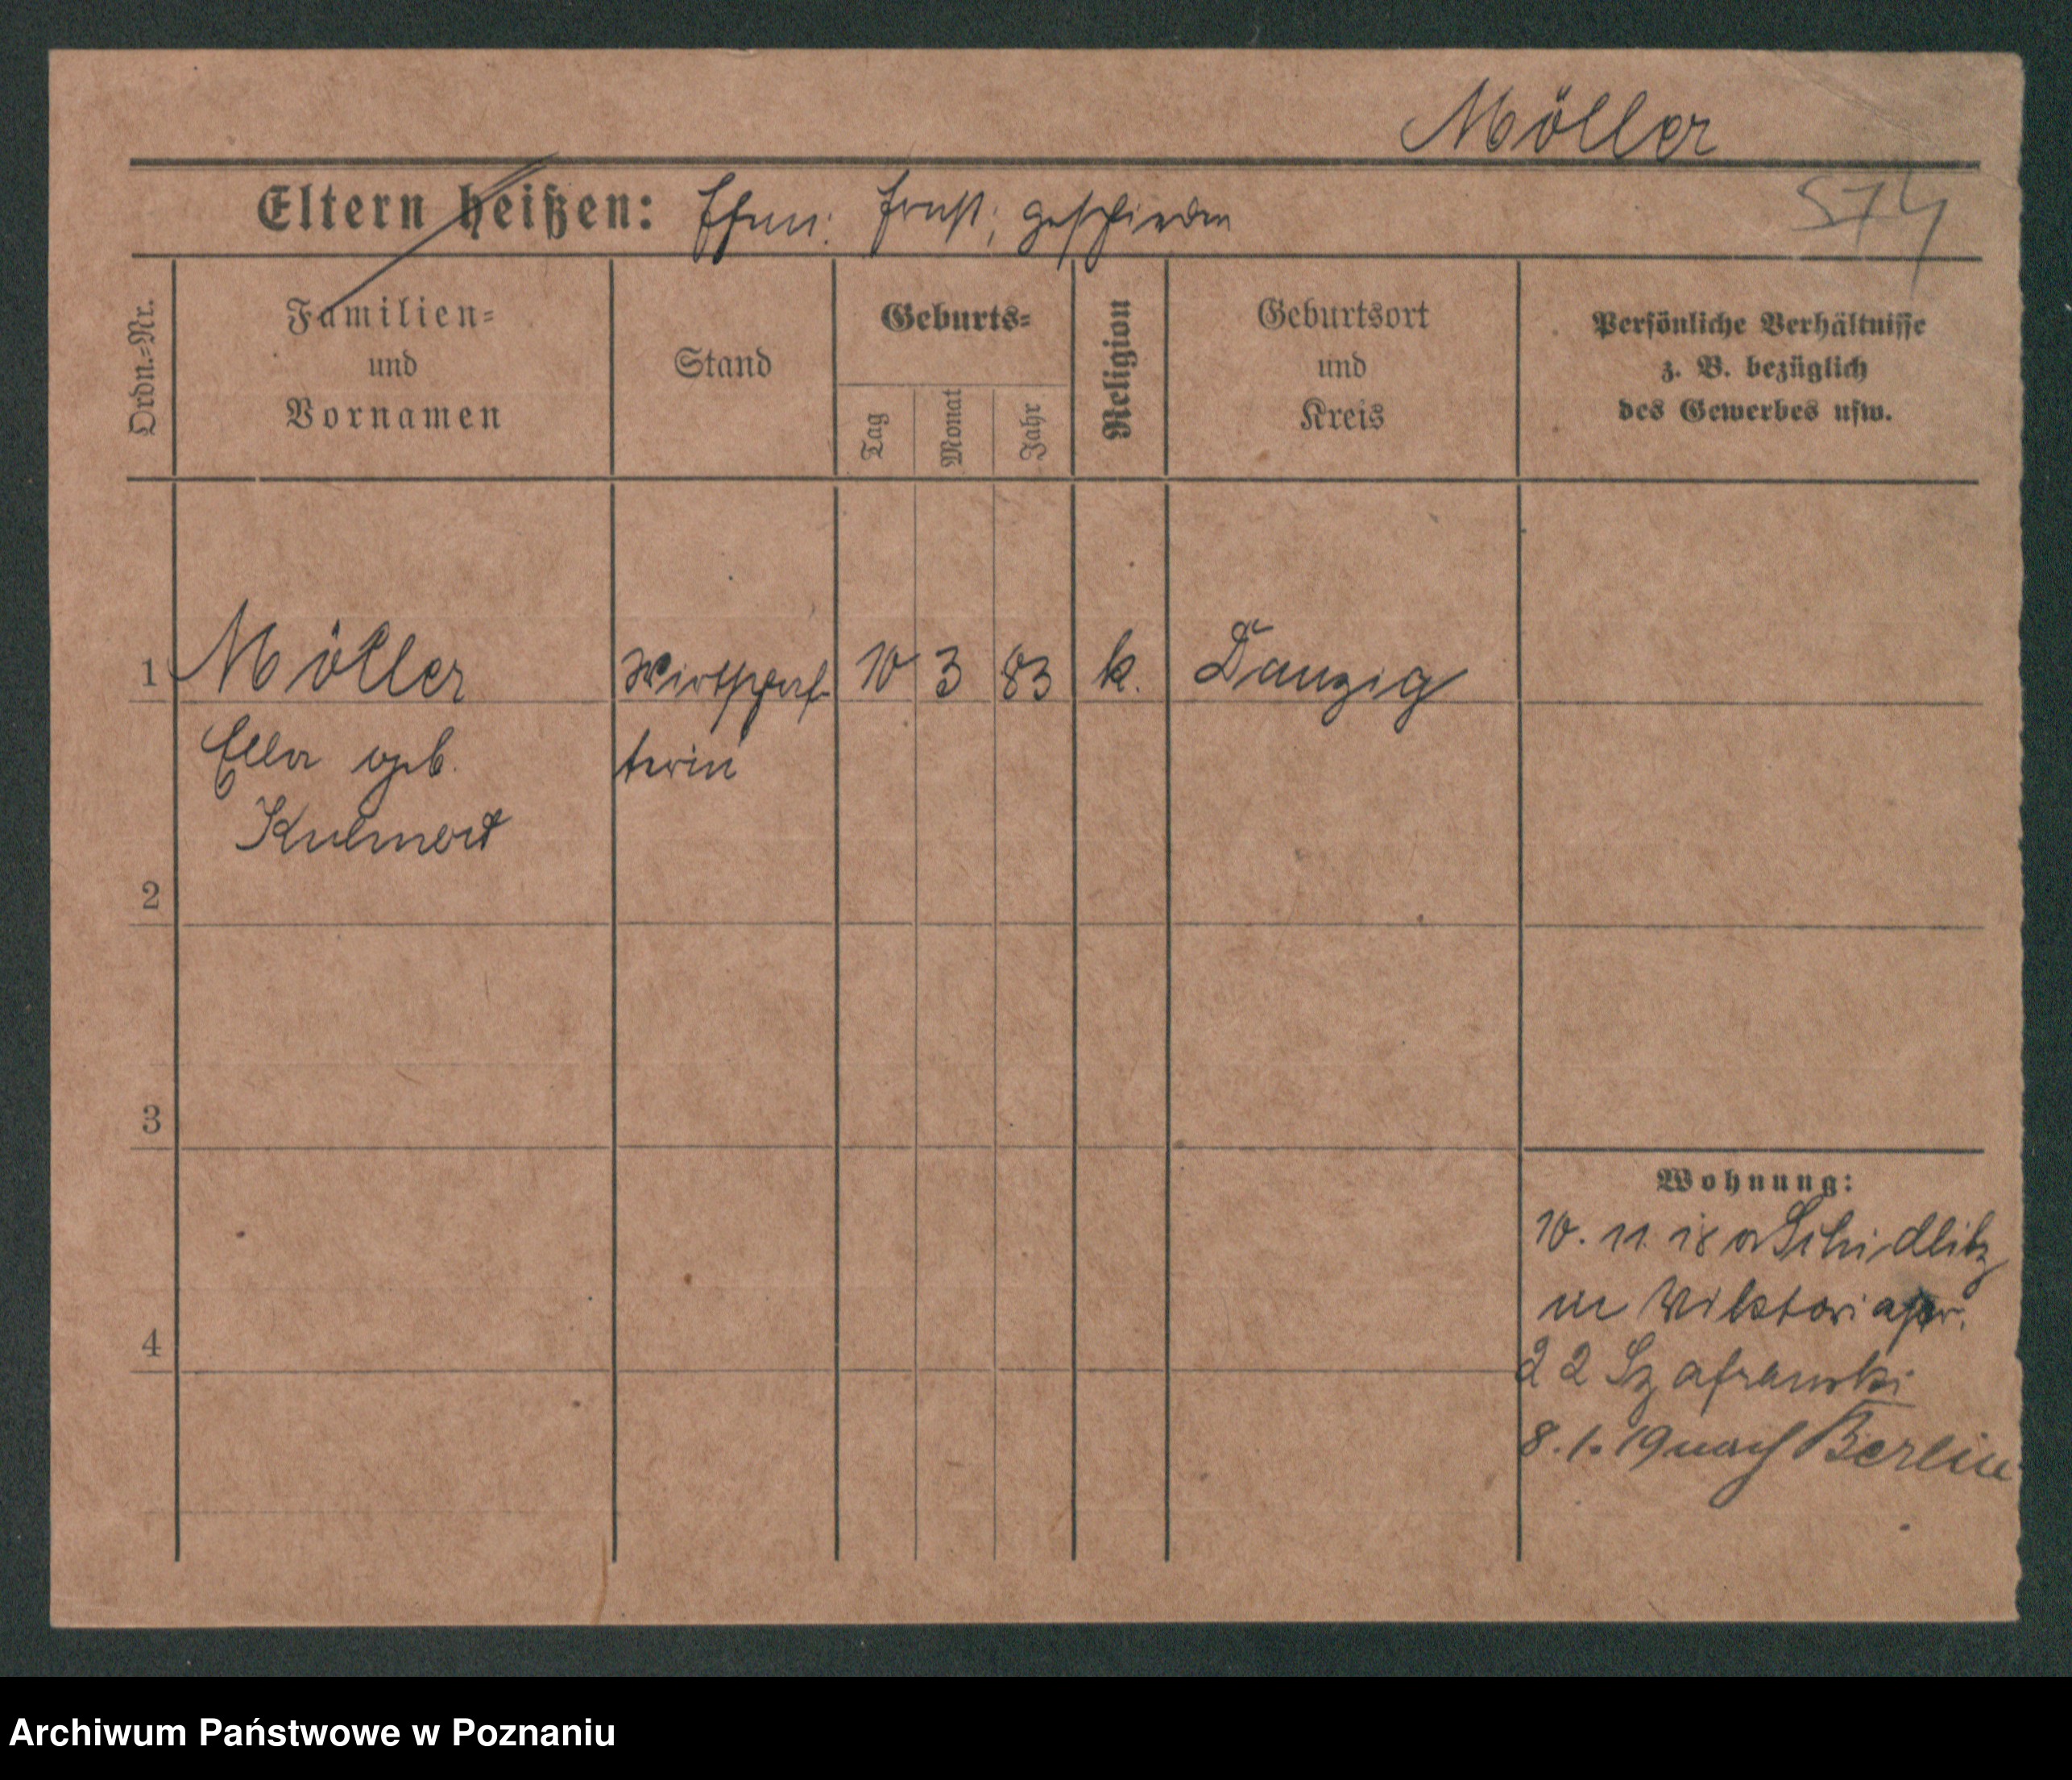 Möller
Eltern heißen: Ehem: Ernst; geschieden
574
Ordn.=Nr.
Familien=
und
Vornamen
Stand
Geburts=
Tag
Monat
Jahr
Religion
Geburtsort
und
Kreis
Persönliche Verhältnisse
z. B. bezüglich
des Gewerbes usw.
1 Möller Wirtschaf- 10 3 83 k. Danzig
Ella geb. terin
2
3
4
Wohnung:
10. 11. 18 a Schidlitz
in Viktoriastr.
22 Szafranski
8. 1. 19 nach Berlin
Archiwum Państwowe w Poznaniu